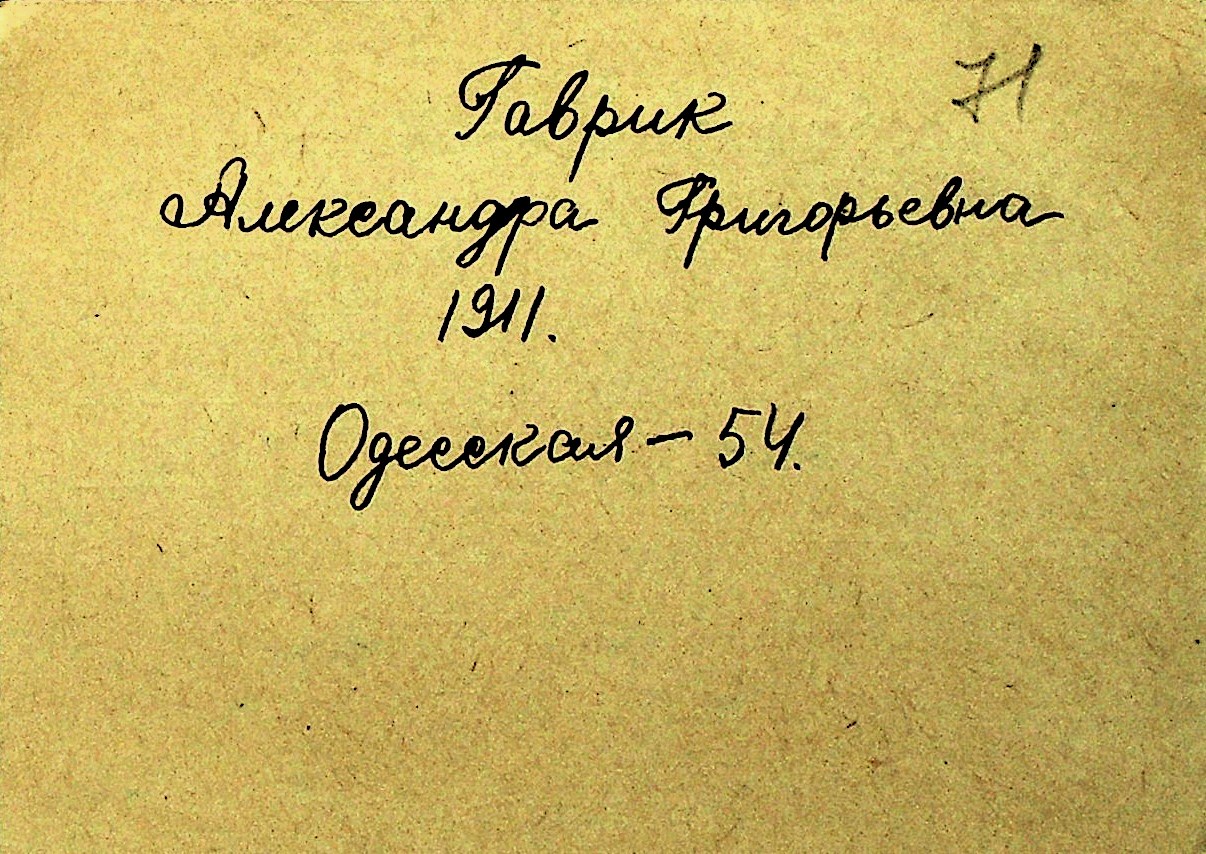 71
Гаврик
Александра Григорьевна
1911.
Одесская – 54.